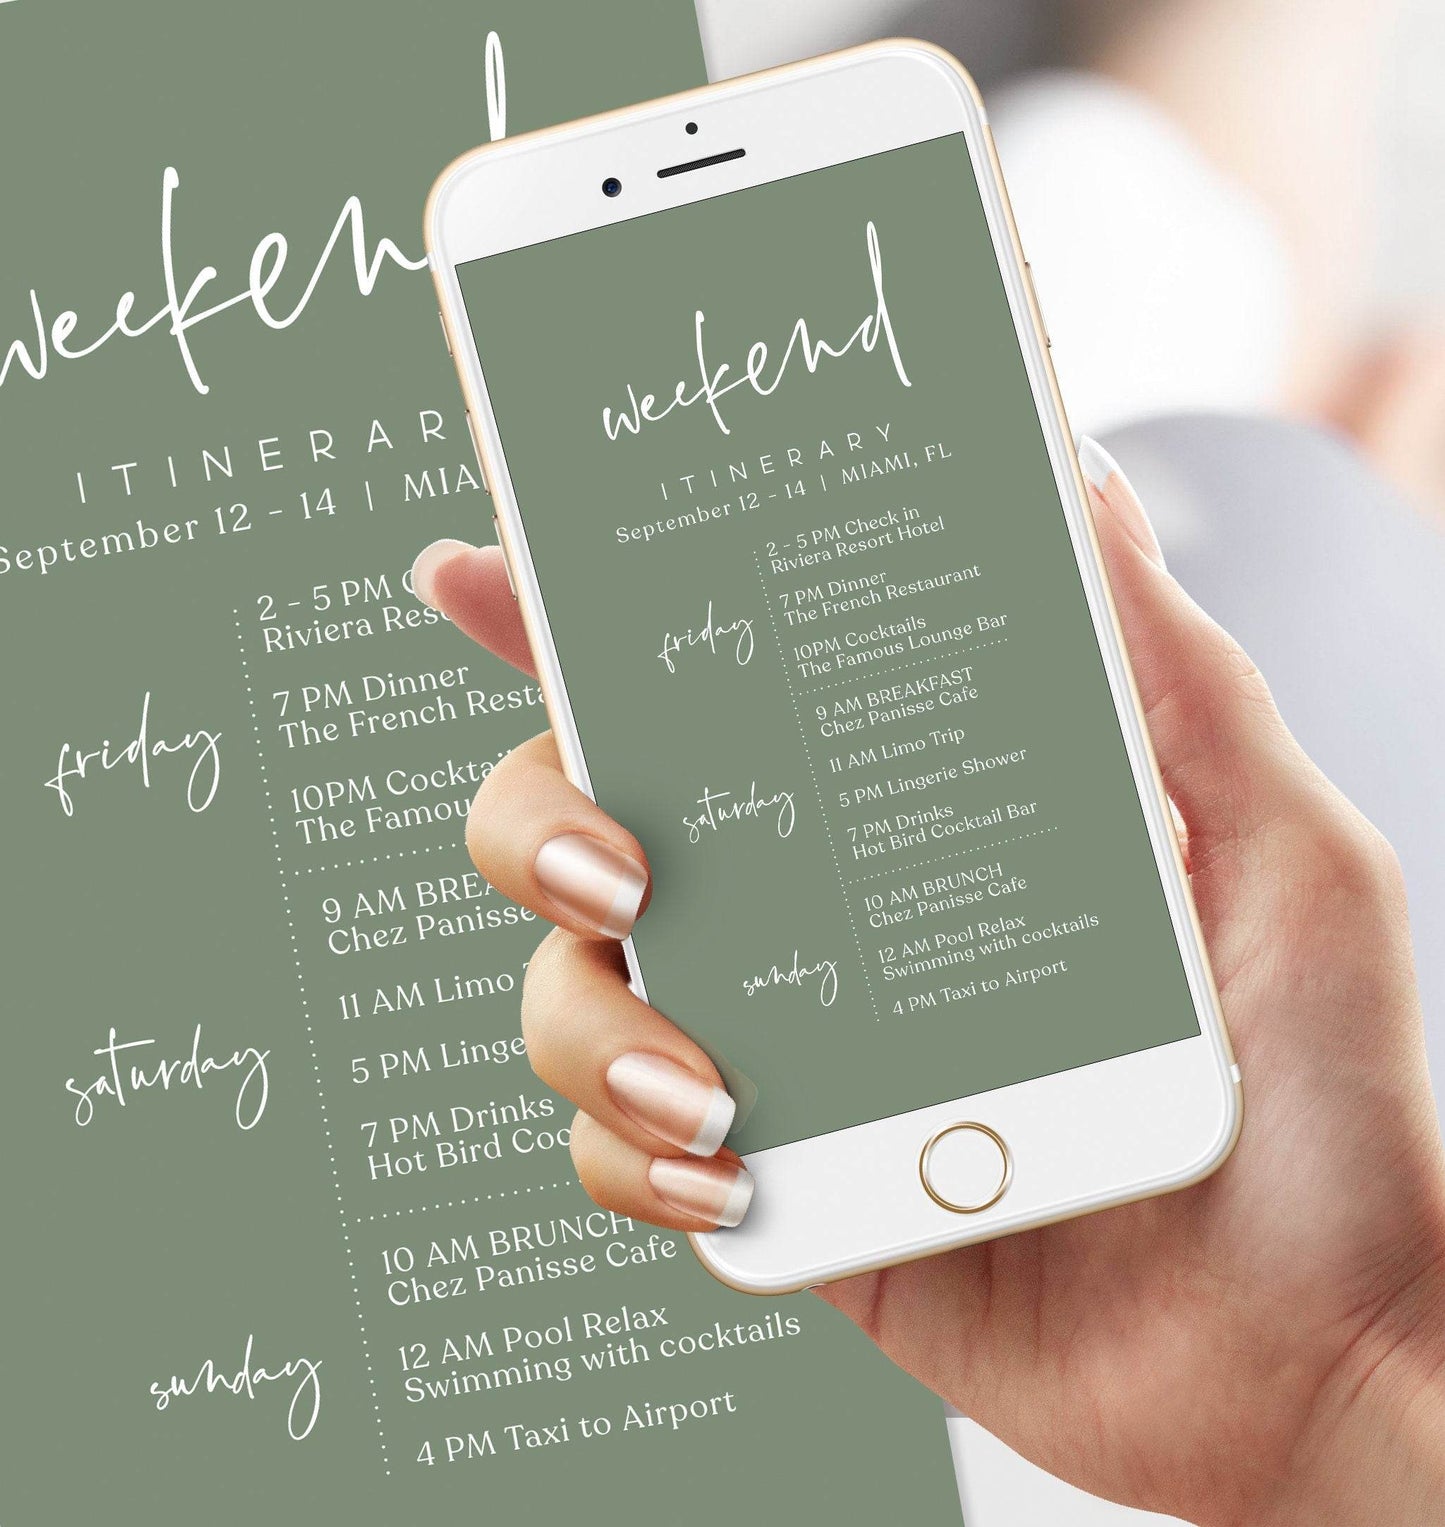 weekend
ITINERAR
September 12 - 14 | MIA
friday
2 - 5 PM
Riviera Reso
7 PM Dinner
The French Resta
10PM Cocktai
The Famou
saturday
9 AM BREA
Chez Panisse
11 AM Limo
5 PM Linge
7 PM Drinks
Hot Bird Coc
sunday
10 AM BRUNCH
Chez Panisse Cafe
12 AM Pool Relax
Swimming with cocktails
4 PM Taxi to Airport
weekend
ITINERARY
September 12 - 14 | MIAMI, FL
friday
2 - 5 PM Check in
Riviera Resort Hotel
7 PM Dinner
The French Restaurant
10PM Cocktails
The Famous Lounge Bar
saturday
9 AM BREAKFAST
Chez Panisse Cafe
11 AM Limo Trip
5 PM Lingerie Shower
7 PM Drinks
Hot Bird Cocktail Bar
sunday
10 AM BRUNCH
Chez Panisse Cafe
12 AM Pool Relax
Swimming with cocktails
4 PM Taxi to Airport